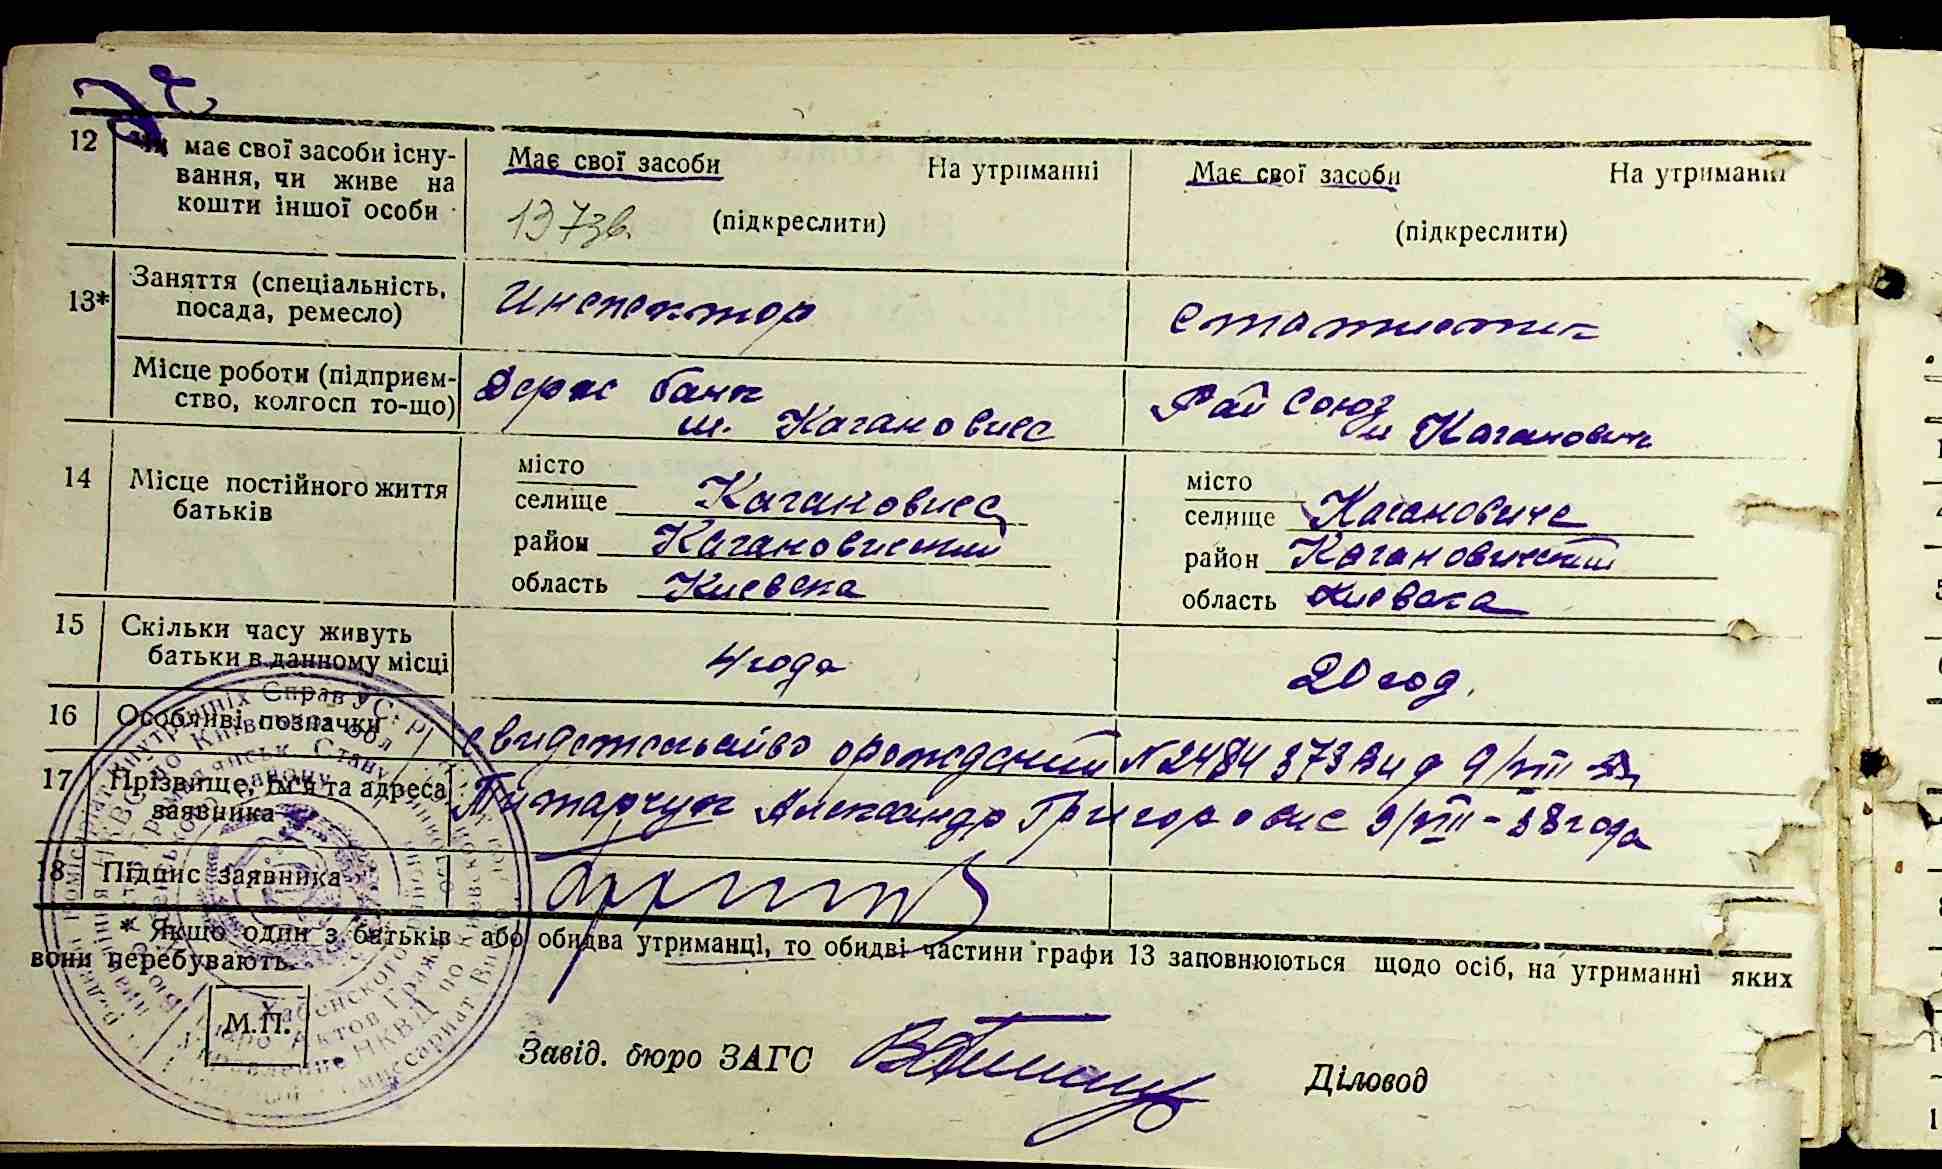 12 Чи має свої засоби існу- Має свої засоби На утриманні Має свої засоби На утриманні
вання, чи живе на
кошти іншої особи (підкреслити) (підкреслити)
13* Заняття (спеціальність, Инспектор статистик
посада, ремесло)
Місце роботи (підприєм- Держ банк Рай союз
ство, колгосп то-що) м. Кагановичс м Каганович
14 Місце постійного життя місто місто
батьків селище Кагановичс селище Кагановиче
район Кагановичский район Кагановичский
область Киевска область Киевска
15 Скільки часу живуть 4 года 20 год.
батьки в данному місці
16 Особливі позначки свидетельство орождений N2484373 Выд 9/VIII
17 Прізвище, ім'я та адреса Александр Григорович 9/VIII-38 года
заявника
18 Підпис заявника
* Якщо один з батьків або обидва утриманці, то обидві частини графи 13 заповнюються щодо осіб, на утриманні яких
вони перебувають.
М.П.
Завід. бюро ЗАГС Діловод